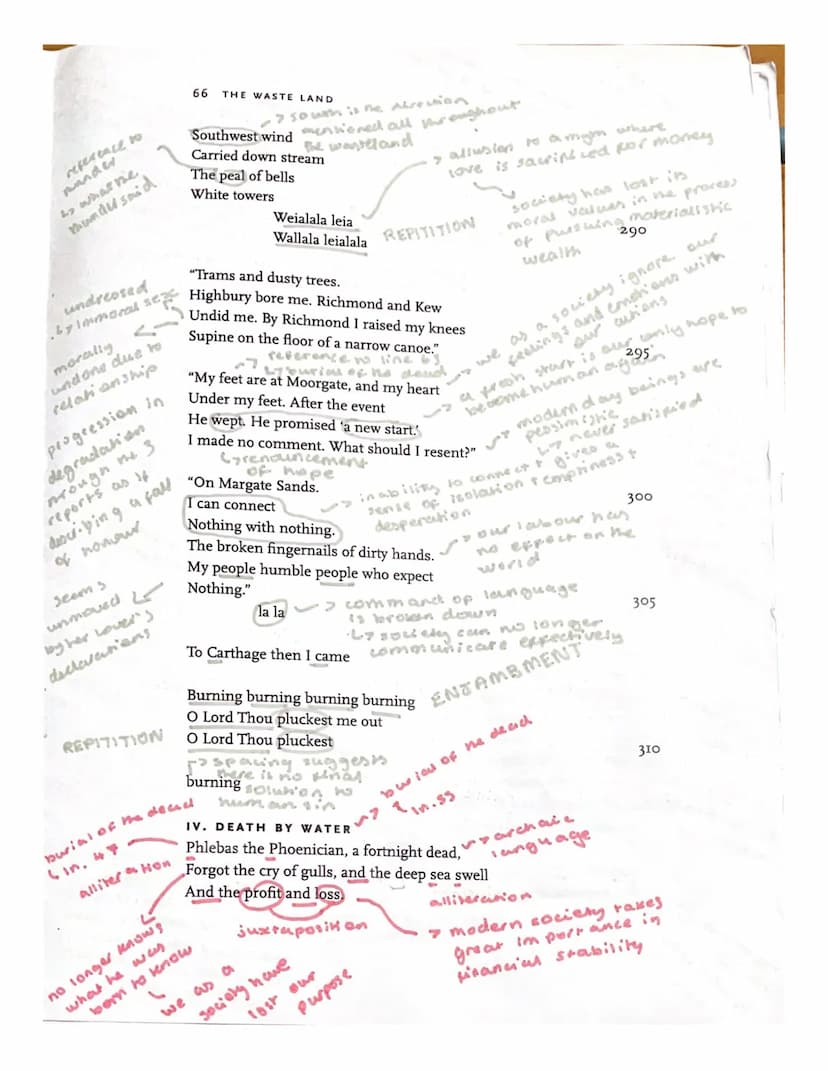 66 THE WASTE LAND
↳ south is the direction
mentioned all throughout
the wasteland
Southwest wind
Carried down stream
The peal of bells
White towers
Weialala leia
Wallala leialala
REPITITION
290
reference to
↳ what the
said
↳ allusion to a myth where
love is sacrificed for money
society has lost its
moral values in the process
of pursuing materialistic
wealth
"Trams and dusty trees.
Highbury bore me. Richmond and Kew
Undid me. By Richmond I raised my knees
Supine on the floor of a narrow canoe."
295
undressed
↳ immoral sex
morally
undone due to
relationship
↳ reference to line 63
↳ burial of the dead
we as a society ignore our
feelings and emotions with
our actions
"My feet are at Moorgate, and my heart
Under my feet. After the event
He wept. He promised 'a new start.'
I made no comment. What should I resent?"
a fresh start is our only hope to
become human again
modern day beings are
pessimistic
↳ never satisfied
↳ renouncement
of hope
progression in
degradation
through the 3
reports as if
describing a fall
of honour
"On Margate Sands.
I can connect
Nothing with nothing.
The broken fingernails of dirty hands.
My people humble people who expect
Nothing."
300
inability to connect + gives a
sense of isolation + emptiness +
desperation
our labour has
no effect on the
world
305
la la
command of language
is broken down
↳ society can no longer
communicate effectively
seems
unmoved
by her lover's
declarations
To Carthage then I came
Burning burning burning burning
O Lord Thou pluckest me out
O Lord Thou pluckest
ENJAMBMENT
REPITITION
310
↳ spacing suggests
there is no final
solution to
human sin
burning
IV. DEATH BY WATER
burial of the dead
↳ ln. 55
burial of the dead
↳ ln. 47
Phlebas the Phoenician, a fortnight dead,
Forgot the cry of gulls, and the deep sea swell
And the profit and loss.
archaic
language
alliteration
alliteration
juxtaposition
modern society takes
great importance in
financial stability
no longer knows
what he was
born to know
↳ we as a
society have
lost our
purpose